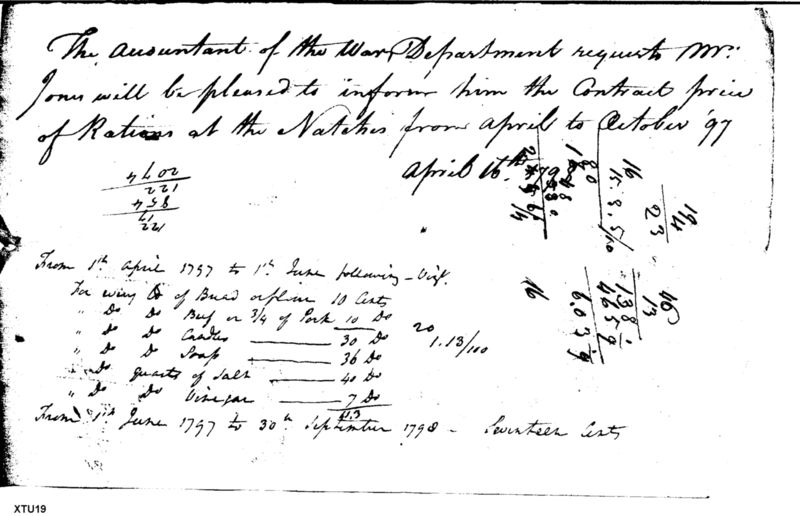 The Accountant of the War Department requests Mr.
Jones will be pleased to inform him the Contract price
of Rations at the Natches from April to October '97
April 16th 1798
From 1st April 1797 to 1st June following - Viz.
For every of Bread or flour 10 Cents
" Do Do Beef or 3/4 of Pork 10 Do
" Do Do Candles 30 Do
" Do Do Soap 36 Do
" Do quarts of Salt 40 Do
" Do Do Vinegar 7 Do
20
1.13/100
From 1st June 1797 to 30th September 1798 - Seventeen Cents
2074
122
854
17
122
16
15.8.5/10
194
23
46
13
138
465
6.039
16
XTU19